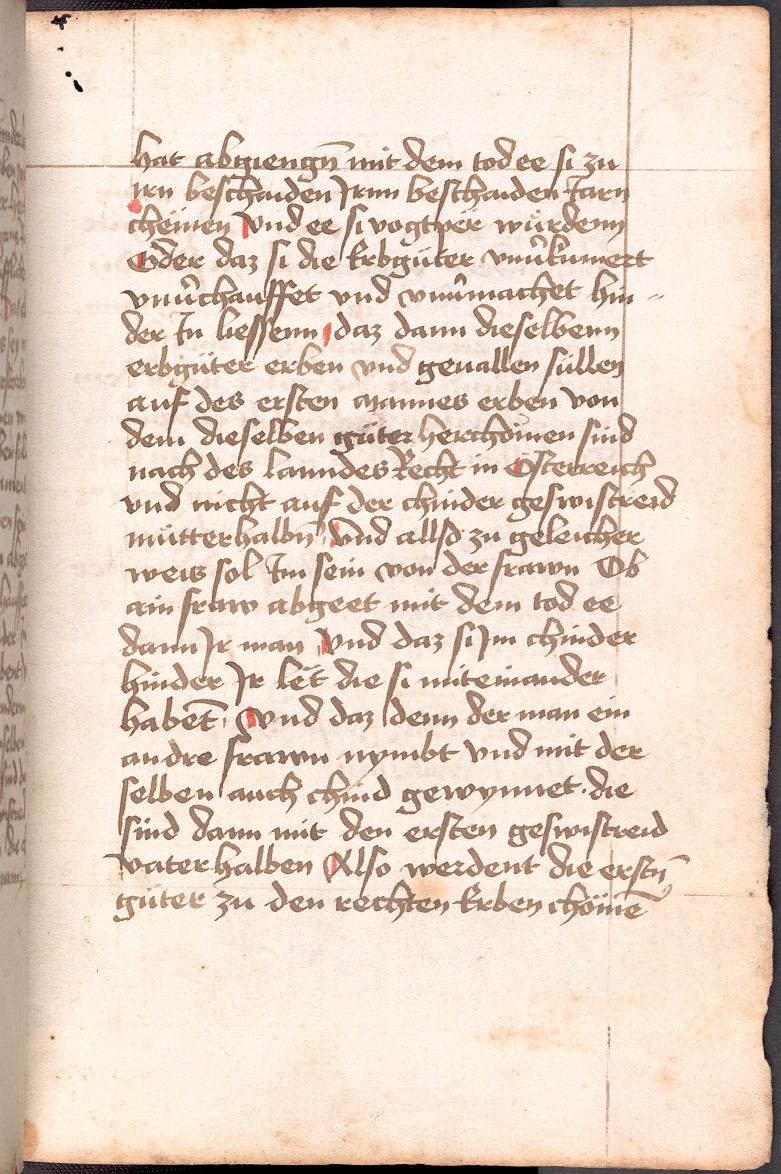 hat abgiengn̄ mit dem tod ee si zu
irn beschaiden Jrnn beschaiden Jarn
chëinen Vnd ee si vogtper würdenn
Oder daz si die Erbgüter vnu̇kumert
vnu̇chauffet vnd vnu̇machet hin„
der In liessenn, daz dann dieselbenn
erbgüter erben vnd geuallen süllen
auf des ersten Mannes erben von
dem dieselben güter herchömen sind
nach des Lanndes Recht in Österreich
vnd nicht auf der chinder geswistreid
mütterhalbn̄ Vnd allso zu geleicher
weis sol Im sein von der frawn Ob
ain fraw abgeet mit dem tod ee
dann Jr man Vnd daz si Jm chinder
hinder Jr let die si miteinander
habent̄. Vnd daz denn der man ein
andre frawn nymbt vnd mit der
selben auch chind gewynnet. die
sind dann mit den ersten geswistreid
vaterhalben Also werdent die erstn̄
güter zu den rechten Erben chömē